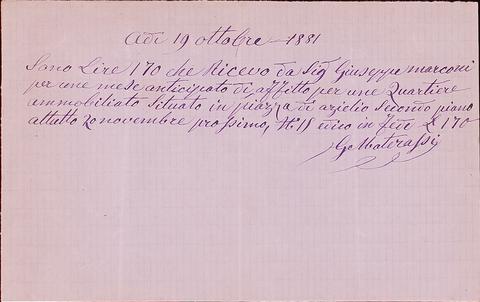 Adi 19 ottobre 1881
Sono Lire 170 che Ricevo da Sig Giuseppe marconi
per une mese anticipato di affitto per une Quartiere
ammobiliato Situato in piazza di azielio Secondo piano
atutto 20 novembre prossimo, N: 18 dico in fede £ 170
G. Materassi